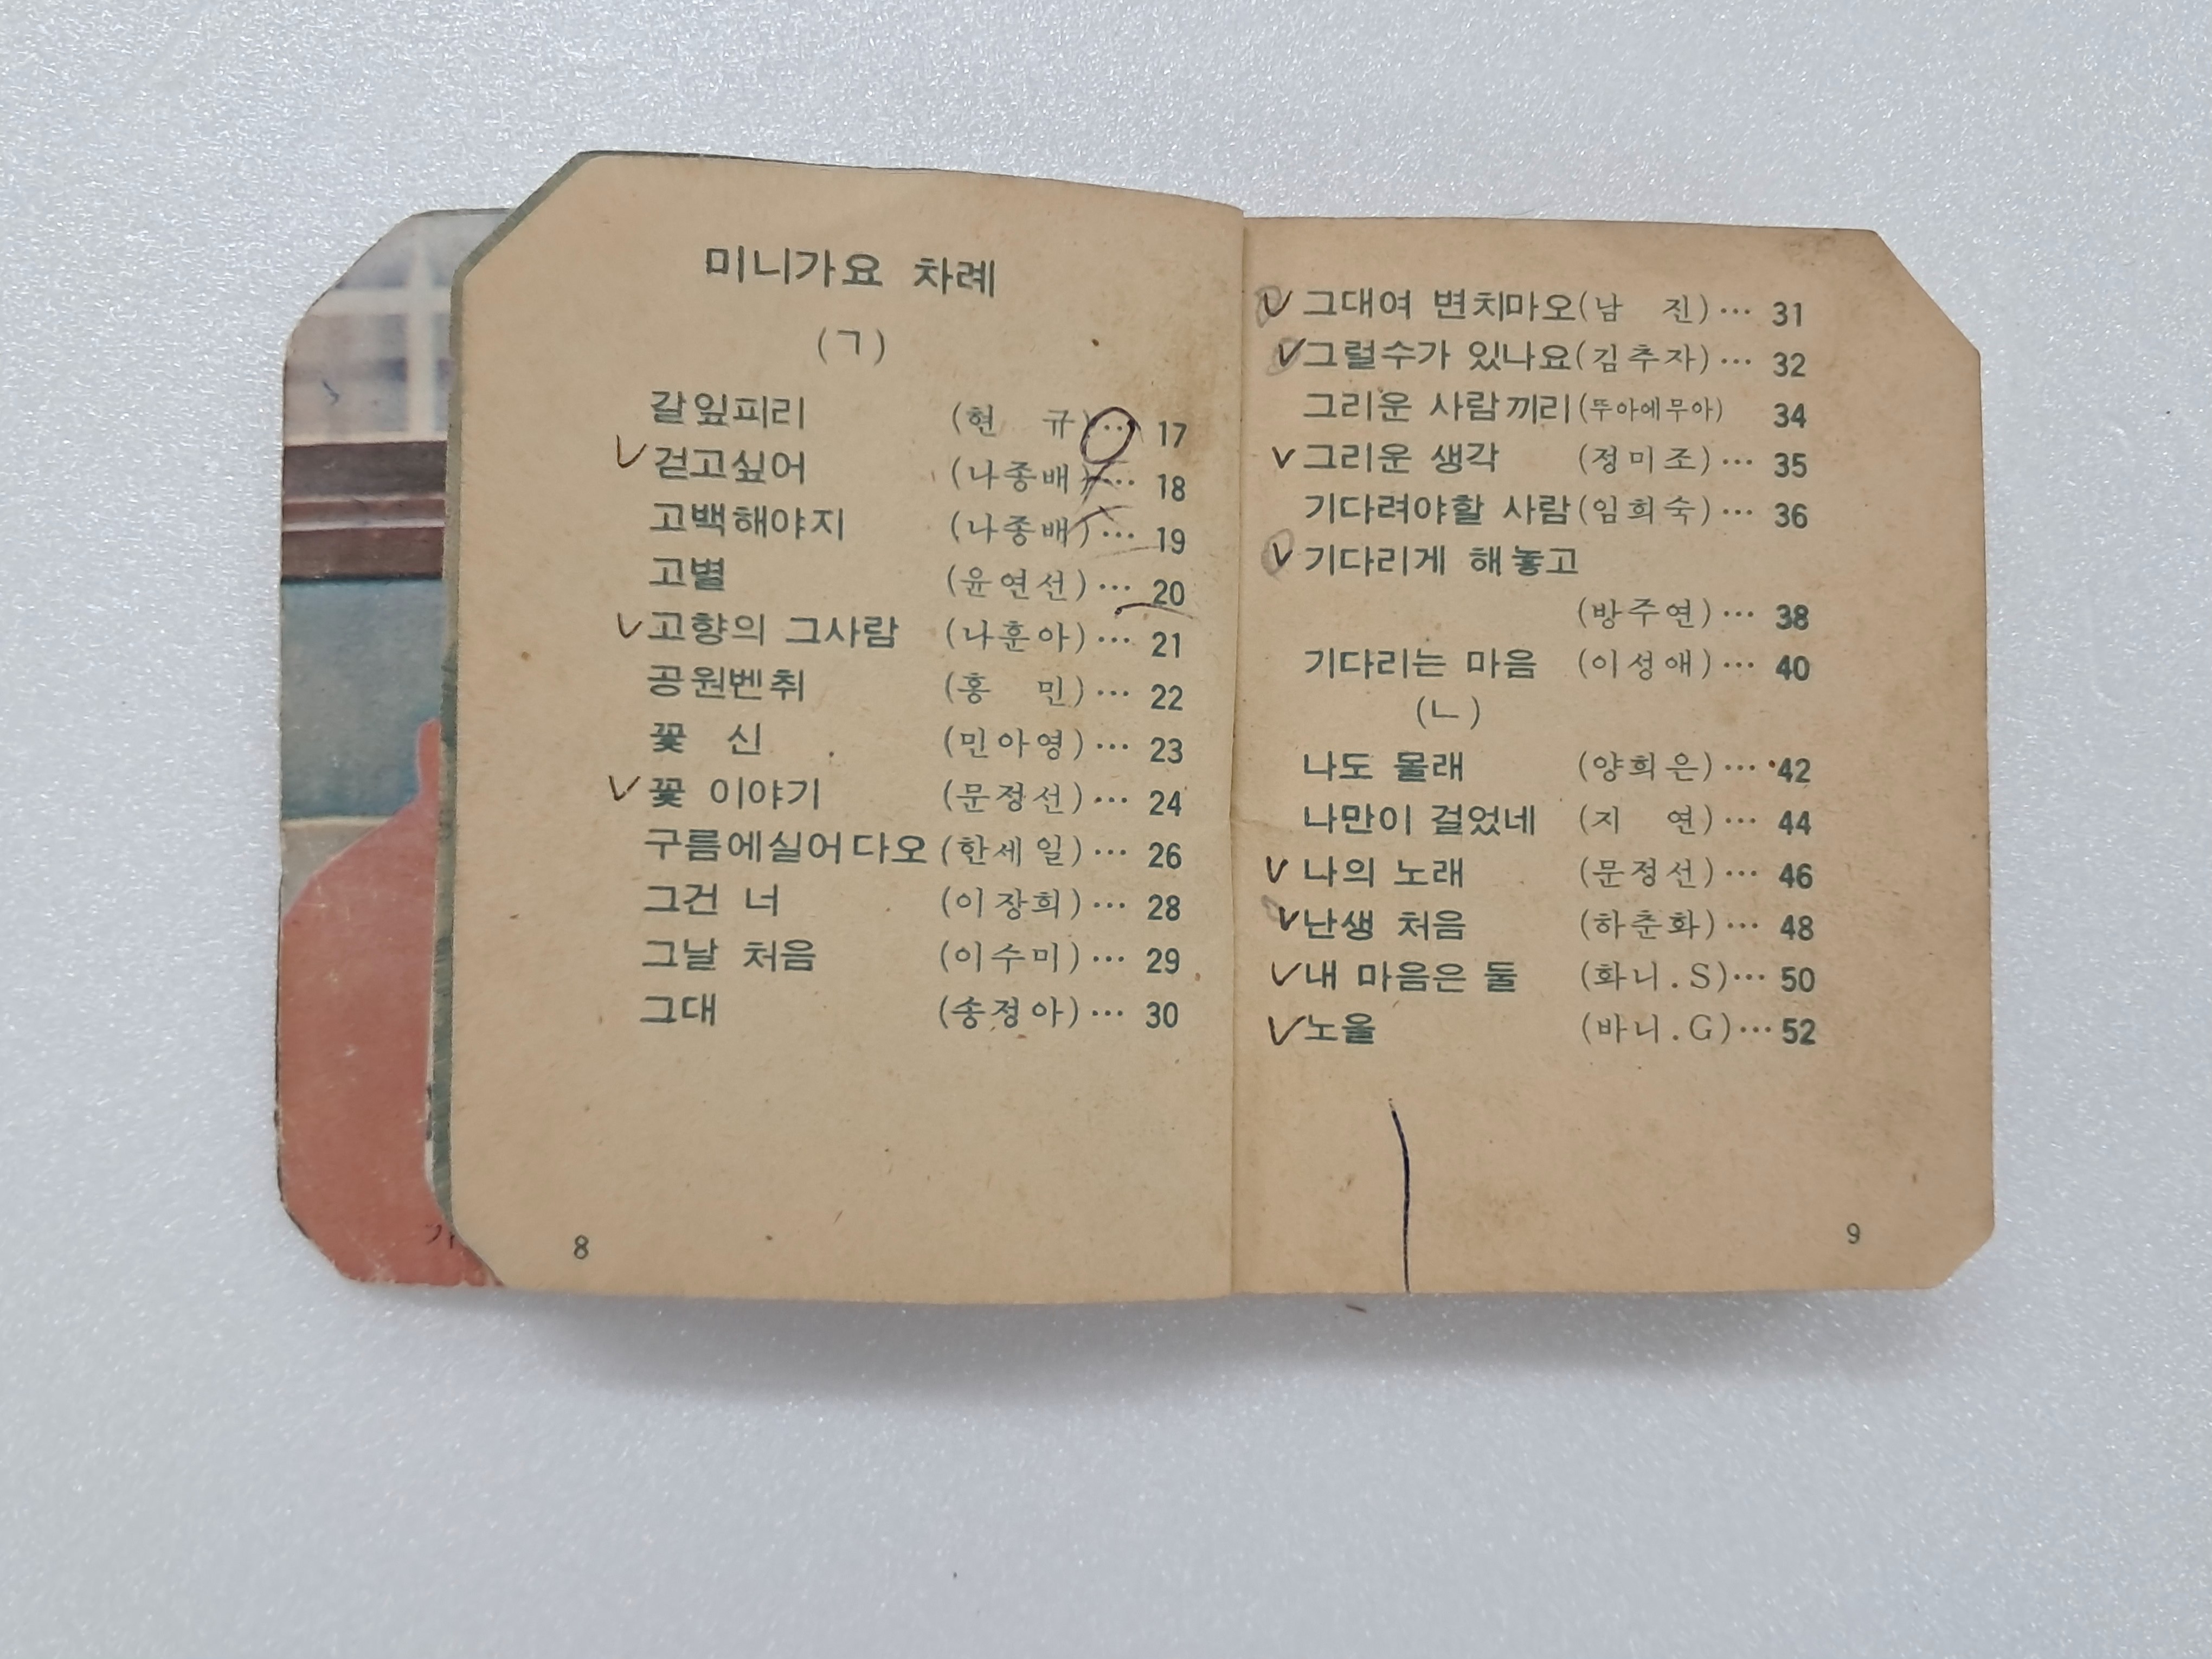 미니가요 차례
(ㄱ)
갈잎피리 (현 규)… 17
∨ 걷고싶어 (나종배)… 18
고백해야지 (나종배)… 19
고별 (윤연선)… 20
∨ 고향의 그사람 (나훈아)… 21
공원벤취 (홍 민)… 22
꽃 신 (민아영)… 23
∨ 꽃 이야기 (문정선)… 24
구름에실어다오 (한세일)… 26
그건 너 (이장희)… 28
그날 처음 (이수미)… 29
그대 (송정아)… 30
8
∨ 그대여 변치마오(남 진)… 31
∨ 그럴수가 있나요(김추자)… 32
그리운 사람끼리(뚜아에무아) 34
∨ 그리운 생각 (정미조)… 35
기다려야할 사람(임희숙)… 36
∨ 기다리게 해놓고
(방주연)… 38
기다리는 마음 (이성애)… 40
(ㄴ)
나도 몰래 (양희은)… 42
나만이 걸었네 (지 연)… 44
∨ 나의 노래 (문정선)… 46
∨ 난생 처음 (하춘화)… 48
∨ 내 마음은 둘 (화니.S)… 50
∨ 노을 (바니.G)… 52
9